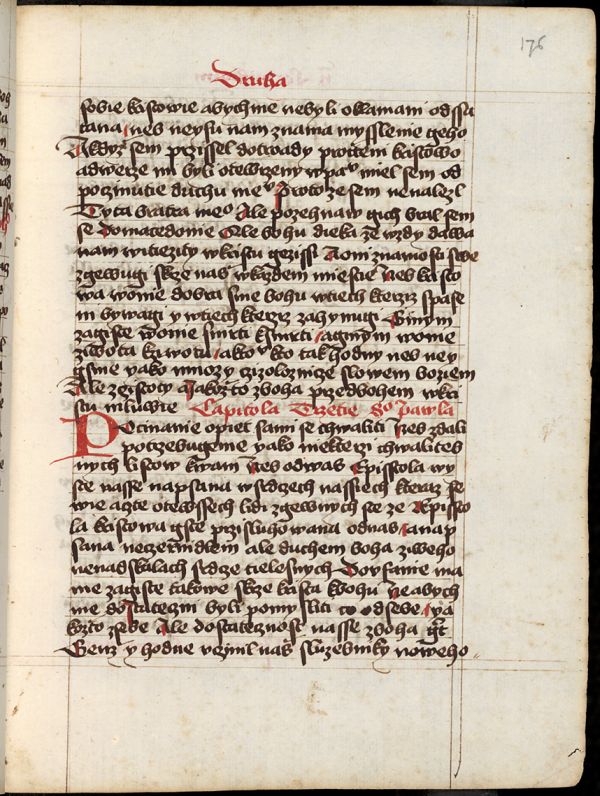 176
Druha
sobie kristowie abychme nebyli oklamani od ssa
tana nes neysu nam znama mysslenie geho
A kdyz sem przissel do troady pro cteni kristowo
a dwerze mi byli otewrzeny w pa° miel sem od
poczinutie duchu me° Proto ze sem nenalezl
Tyta bratra me° Ale pozehnaw gich bral sem
se do macedonie Ale bohu dieka ze wzdy dawa
nam witiezity w kristu gezissi A won znamosti swe
zgewugi skrze nas w kazdem miestie Nes kristo
wa wonie dobra sme bohu w tiech kterziz spase
ni bywagi y w tiech kterziz zahynugi Ginym
zagiste wonie smrti k smrti a ginym wonie
ziwota k ziwotu A ko° kto tak hodny nes ney
gsme yako mnozy czizoloznicze slowem boziem
Ale z czistoty a jakozto z boha przed bohem w kri
stu mluwie Capitola Trzetie S° pawla
Pocinanie opiet sami se chwaliti Nes zdali
potrzebugeme yako niekterzi chwalites
nych listow k wam Nes od was Episstola wy
ste nasse napsana w srdczych nassiech kteraz se
wie a zte ote wssech lidi zgewnych ste ze Episto
la kristowa gste przisluhowana od nas a nap
sana ne czernidlem ale duchem boha ziweho
ne na dskalach srdcze tielesnych Dovfanie ma
me zagiste takowe skrze krista k bohu Ne abych
me dostateczni byli pomysliti co od sebe ya
kozto z sebe Ale dostatecznost nasse z boha gt
Genz y hodne vczinil nas sluzebniky noweho